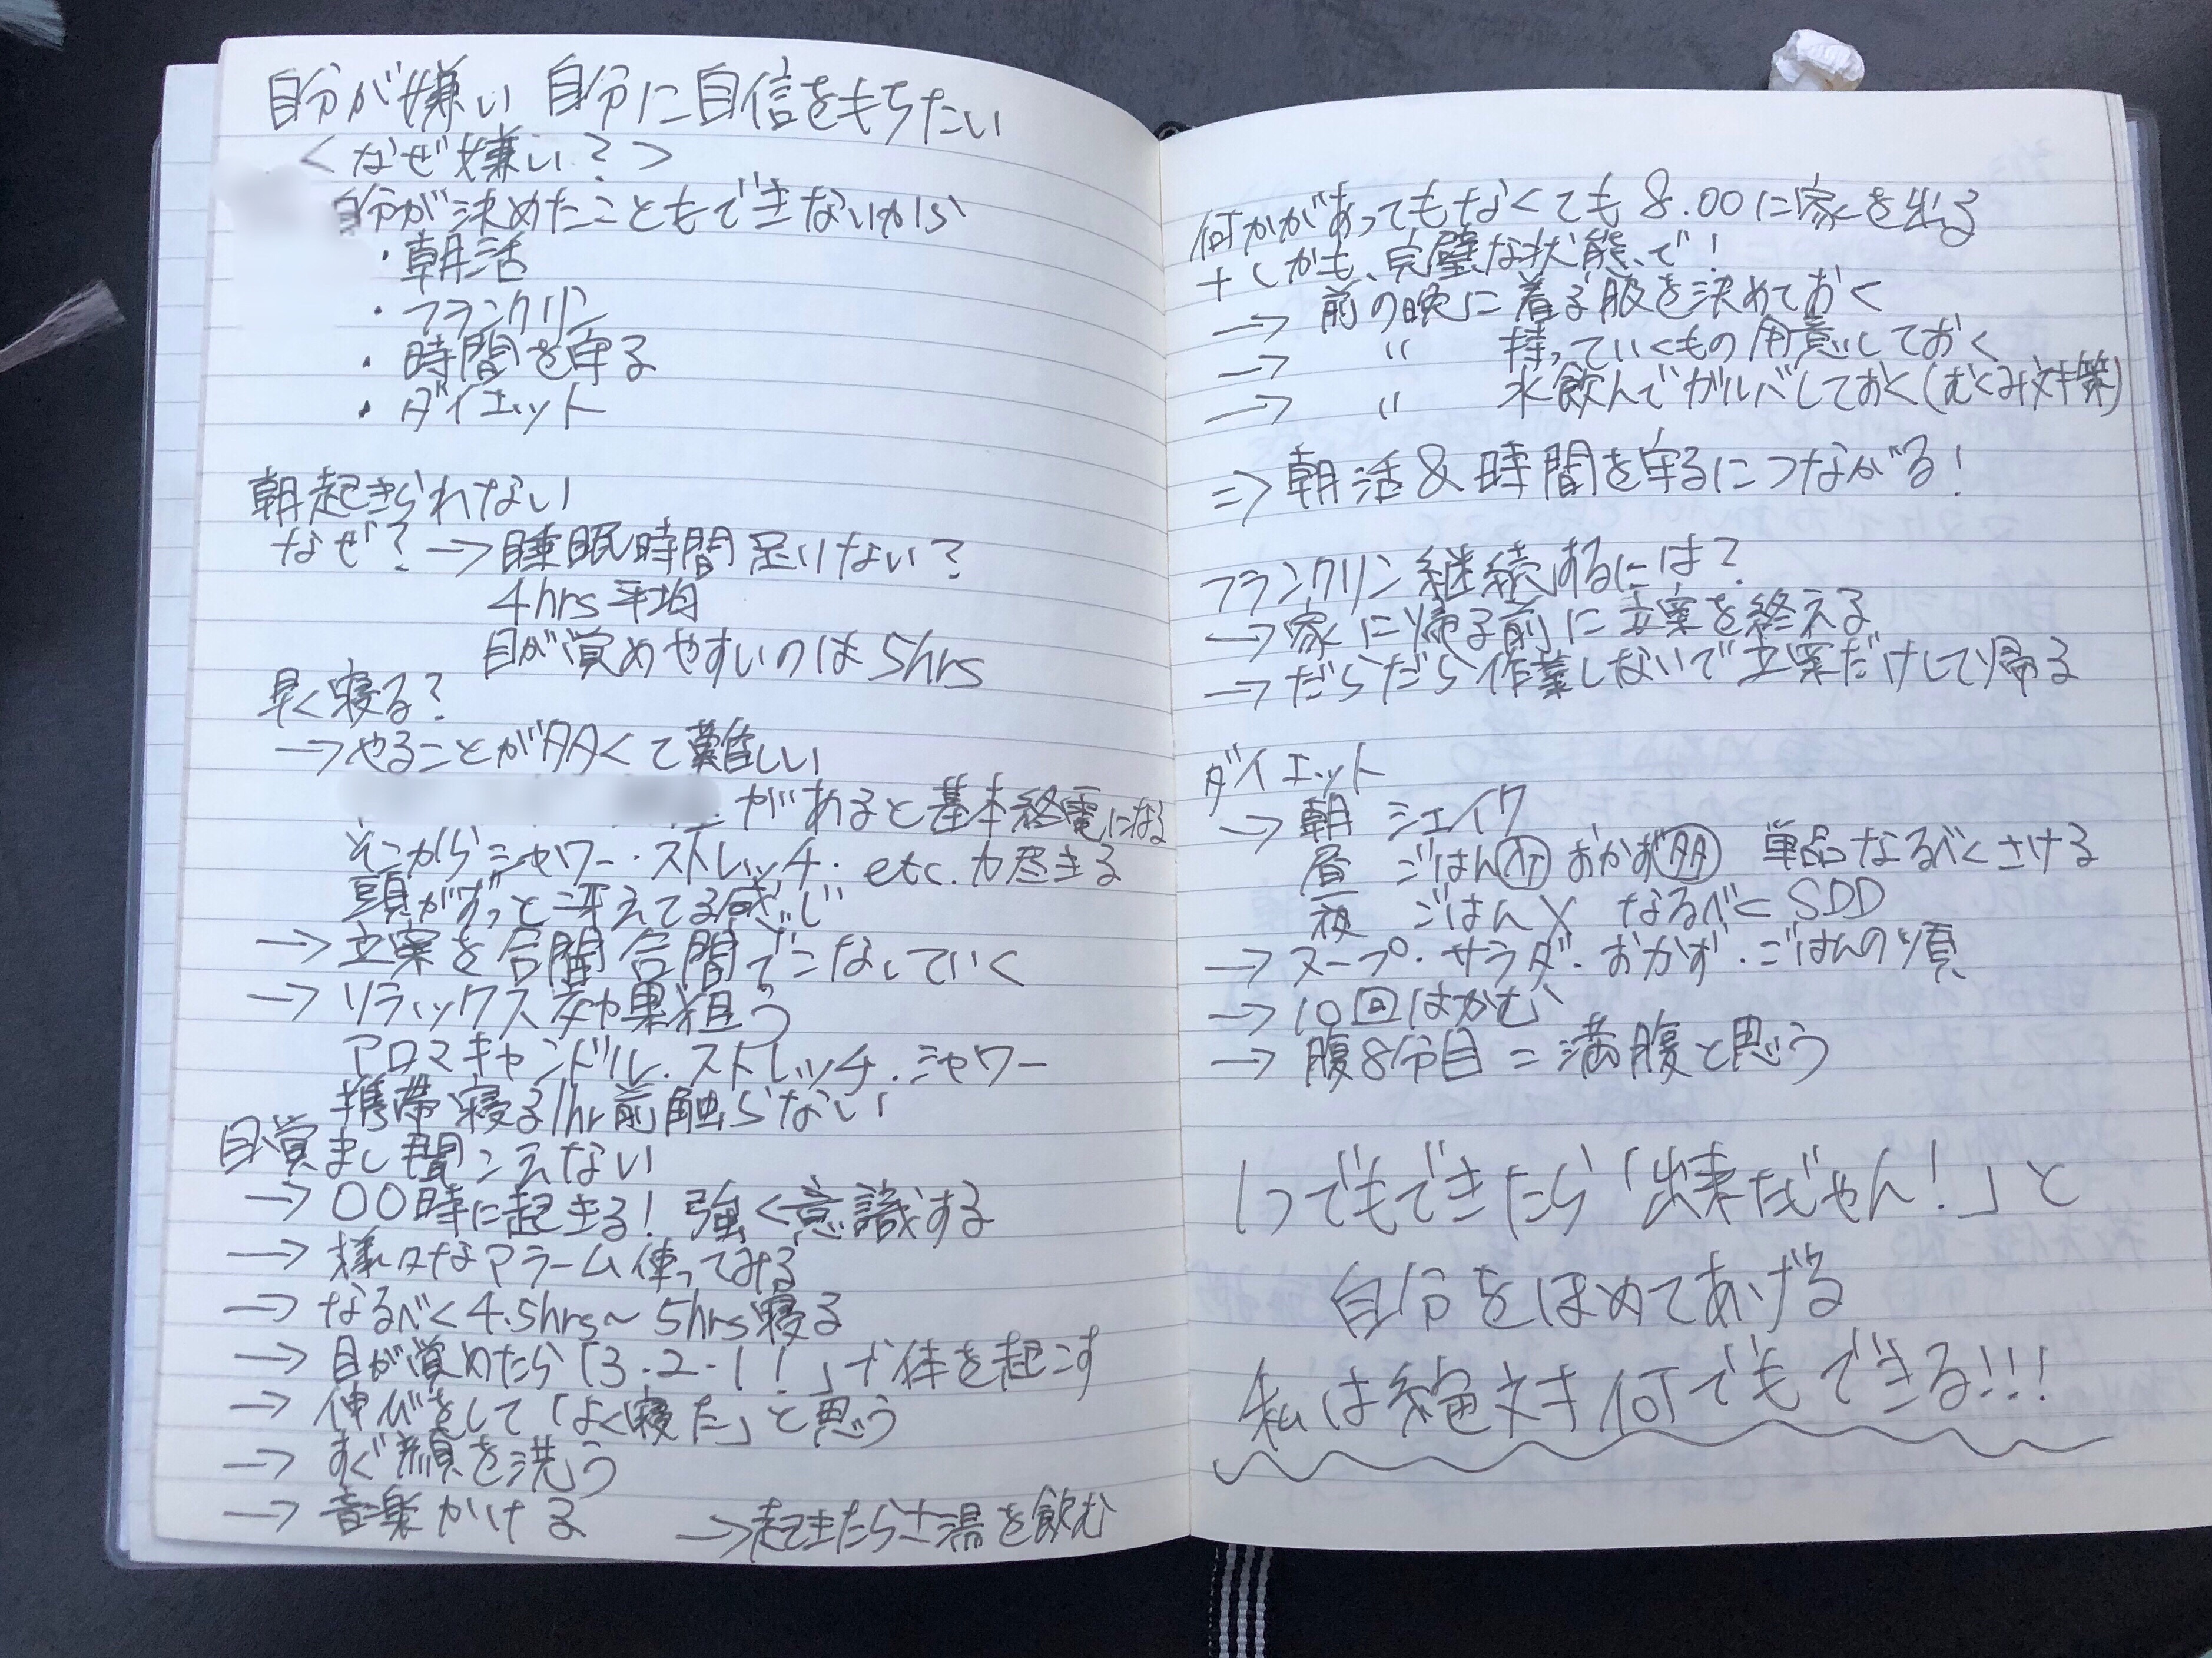 自分が嫌い 自分に自信をもちたい
<なぜ嫌い?>
自分が決めたこともできないから
・朝活
・フランクリン
・時間を守る
・ダイエット
朝起きられない
なぜ? → 睡眠時間足りない?
4hrs平均
目が覚めやすいのは5hrs
早く寝る?
→やることが多くて難しい
があると基本終電になる
そこからシャワー・ストレッチ・etc. 力尽きる
頭がずっと冴えてる感じ
→ 立案を合間合間でこなしていく
→ リラックス効果狙う
アロマキャンドル・ストレッチ・シャワー
携帯寝る1hr前触らない
目覚まし聞こえない
→ 〇〇時に起きる! 強く意識する
→ 様々なアラーム使ってみる
→ なるべく4.5hrs~5hrs寝る
→ 目が覚めたら「3・2・1!」で体を起こす
→ 伸びをして「よく寝た」と思う
→ すぐ顔を洗う
→ 音楽かける →起きたら白湯を飲む
何かがあってもなくても8.00に家を出る
+しかも、完璧な状態で!
→ 前の晩に着る服を決めておく
→ 〃 持っていくもの用意しておく
→ 〃 水飲んでガルバしておく(むくみ対策)
⇒ 朝活&時間を守るにつながる!
フランクリン継続するには?
→家に帰る前に立案を終える
→だらだら作業しないで立案だけして帰る
ダイエット
→ 朝 シェイク
昼 ごはん おかず多 単品なるべくさける
夜 ごはん× なるべくSDD
→ スープ・サラダ・おかず・ごはんの順
→ 10回はかむ
→ 腹8分目=満腹と思う
1つでもできたら「出来たじゃん!」と
自分をほめてあげる
私は絶対何でもできる!!!